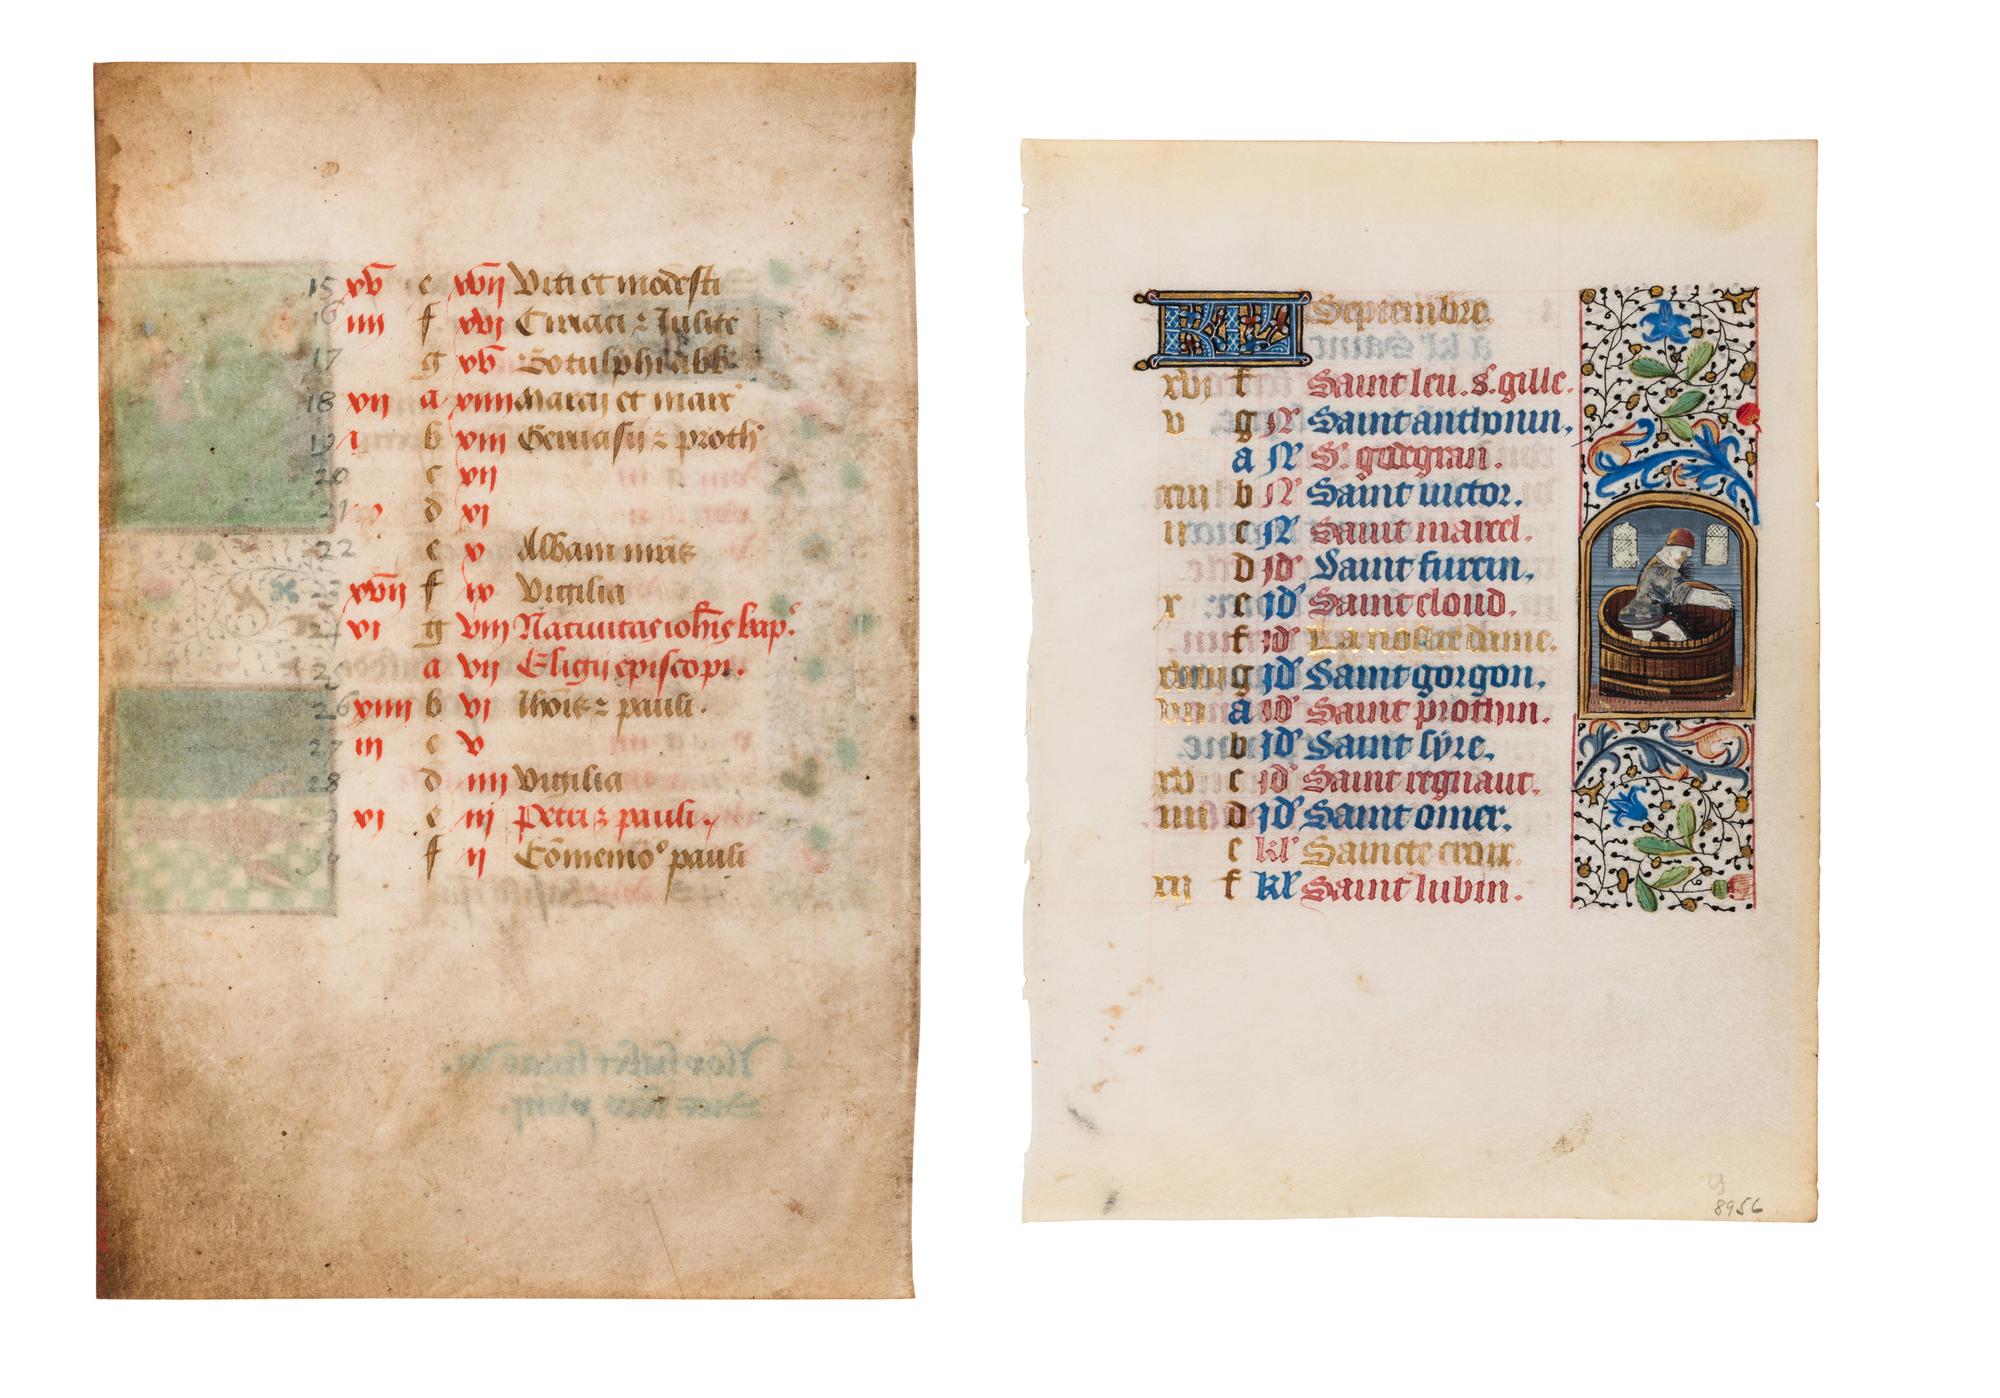 15 xv e xvii Viti et modesti
16 iiii f xvi Ciriaci ⁊ Julite
17 g xv Botulphi abb
18 xii a xiiii Marci et marc
19 i b xiii Gervasii ⁊ proth
20 c xii
21 d xi
22 e x Albani mris
23 xvii f ix Vigilia
24 vi g viii Nativitas iohis bap.
25 a vii Eligii episcopi.
26 xiiii b vi Iohis ⁊ pauli.
27 iii c v
28 d iiii Vigilia
29 xi e iii Petri ⁊ pauli.
f ii Comemo pauli
KL Septembre.
xvi f Saint leu. s. gille.
v g N Saint anthonin.
a N S. godgran.
xiii b N Saint victor.
ii c N Saint marcel.
d id Saint fursin.
x e id Saint cloud.
f id La nostre dame.
xviii g id Saint gorgon.
vii a id Saint prothin.
b id Saint syre.
xv c id Saint regnaut.
iiii d id Saint omer.
e kl Saincte croix.
xii f kl Saint lubin.
8956